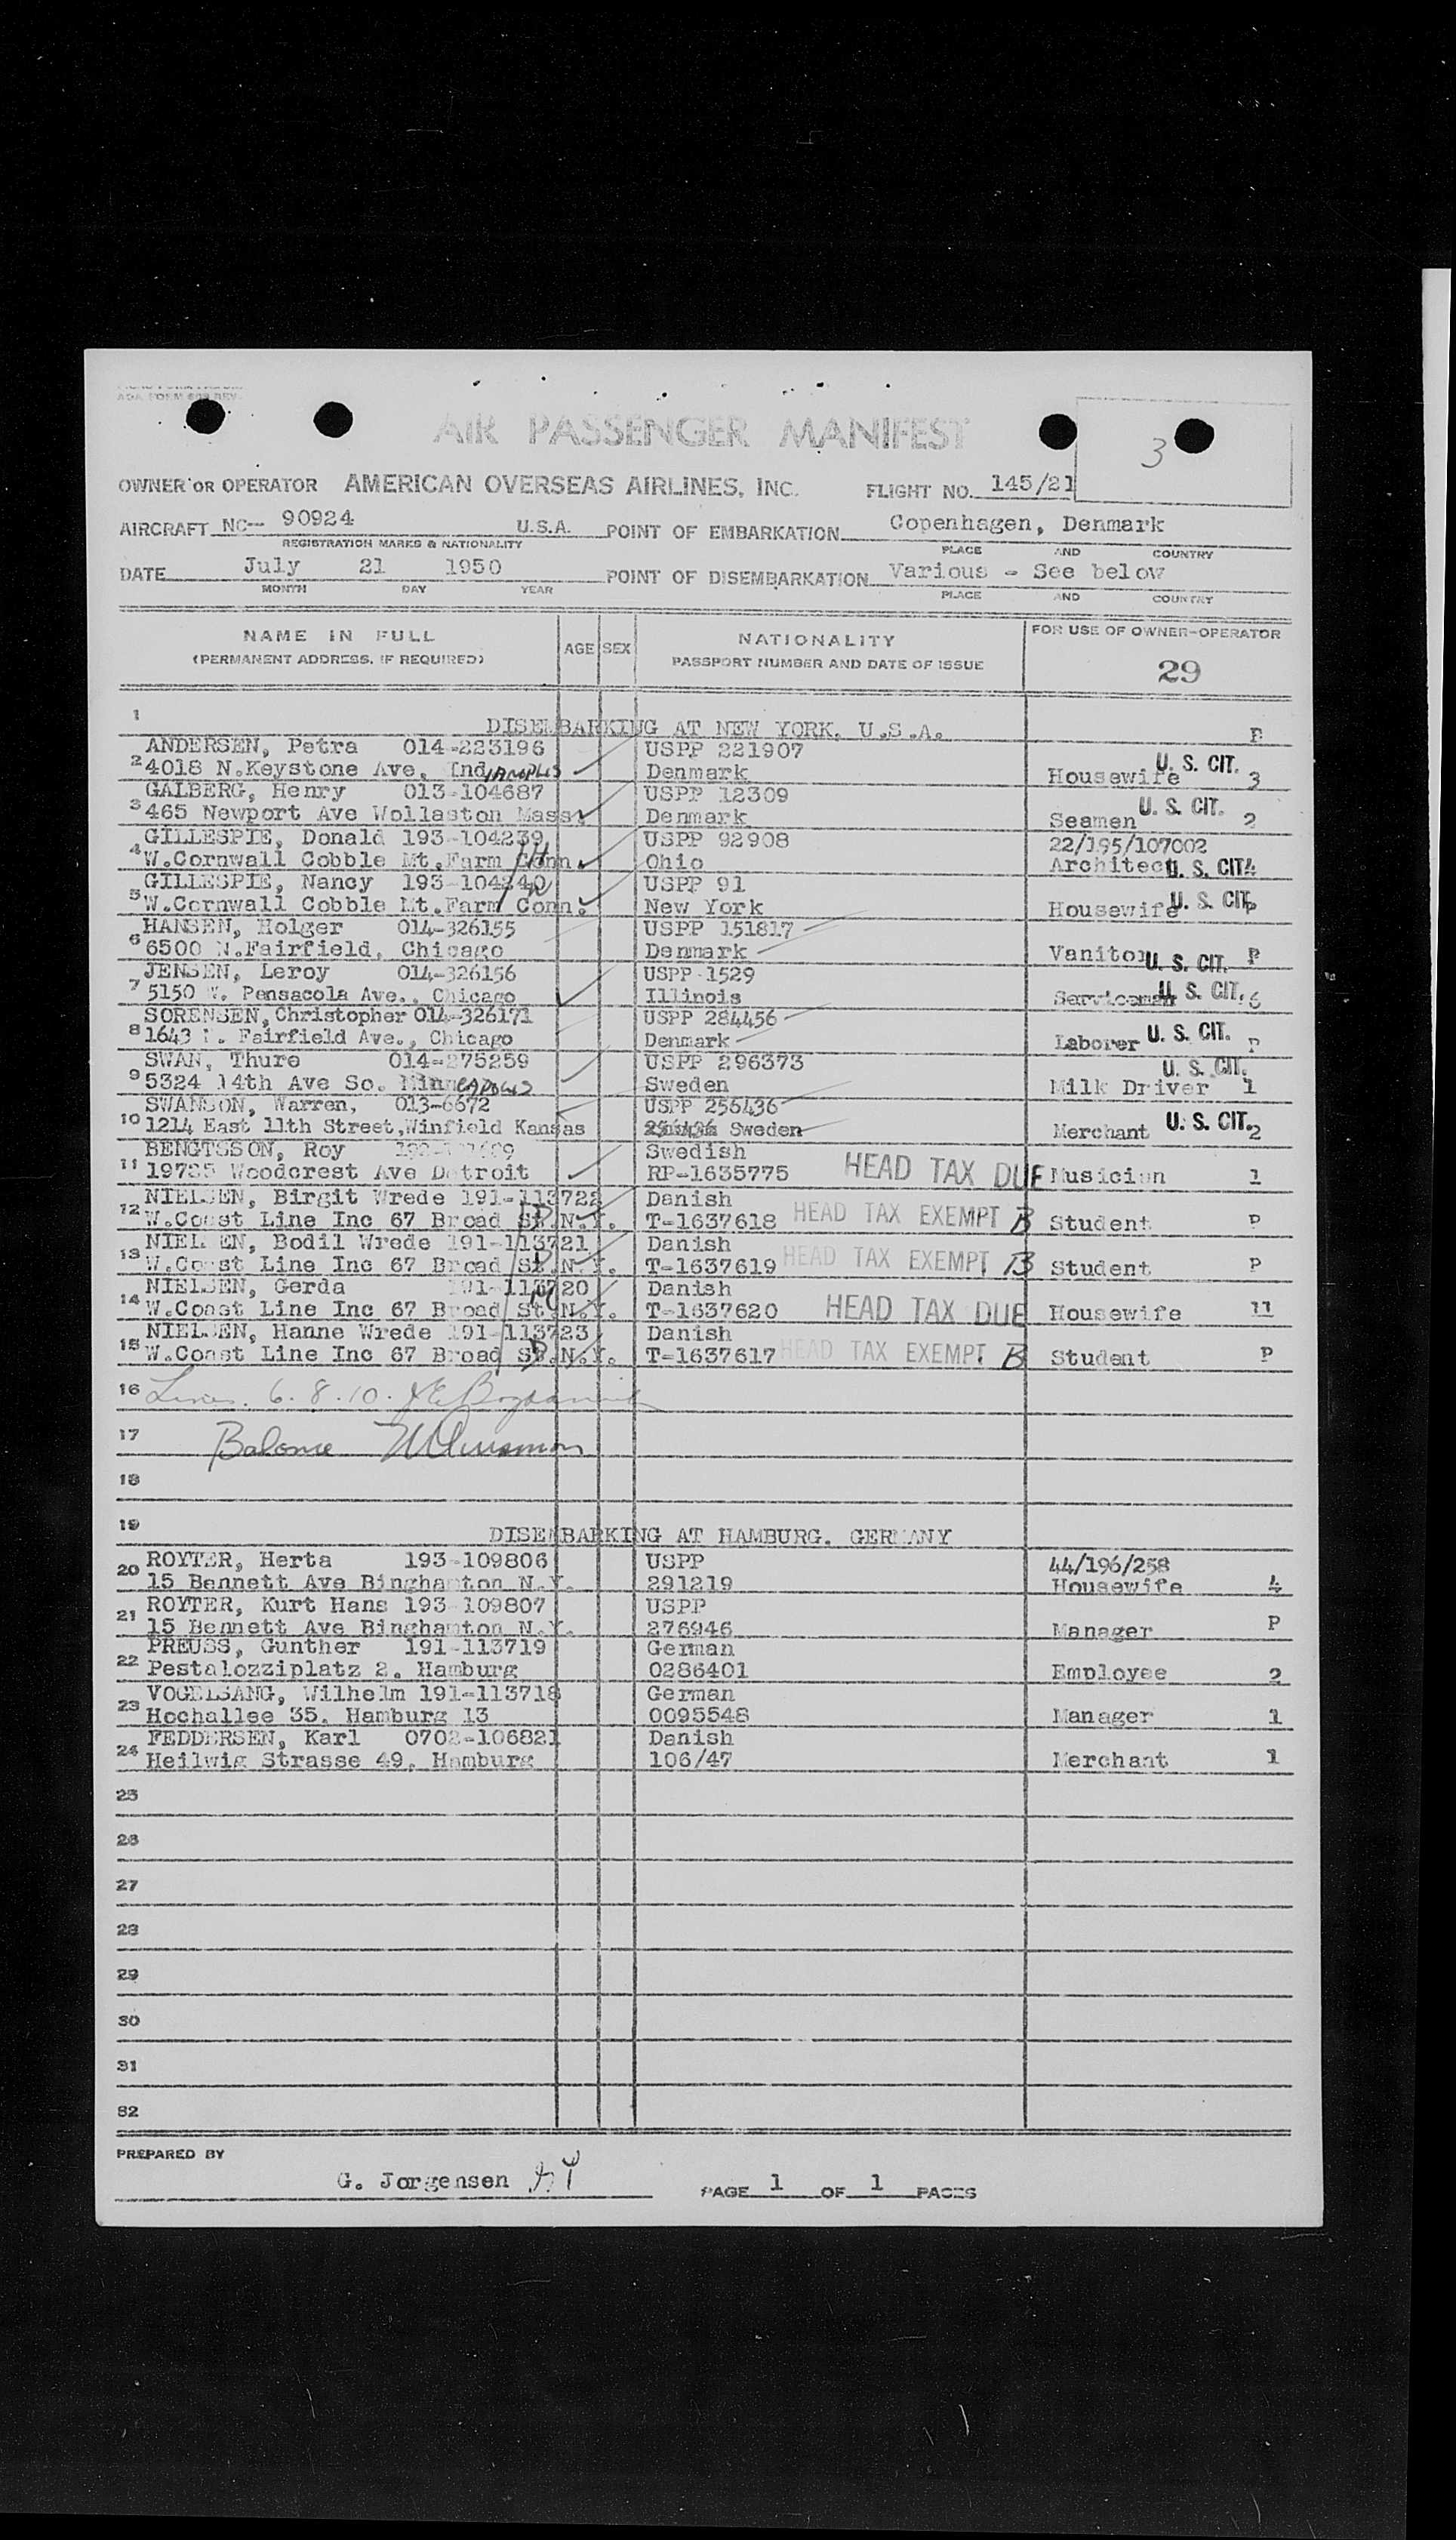 AOA FORM 608 REV.
AIR PASSENGER MANIFEST
3
OWNER OR OPERATOR AMERICAN OVERSEAS AIRLINES, INC. FLIGHT NO. 145/21
AIRCRAFT NC-- 90924 U.S.A. POINT OF EMBARKATION Copenhagen, Denmark
REGISTRATION MARKS & NATIONALITY PLACE AND COUNTRY
DATE July 21 1950 POINT OF DISEMBARKATION Various - See below
MONTH DAY YEAR PLACE AND COUNTRY
NAME IN FULL AGE SEX NATIONALITY FOR USE OF OWNER-OPERATOR
(PERMANENT ADDRESS, IF REQUIRED) PASSPORT NUMBER AND DATE OF ISSUE 29
1 DISEMBARKING AT NEW YORK, U.S.A. P
ANDERSEN, Petra 014-223196 USPP 221907
2 4018 N.Keystone Ave, Indianaplis Denmark Housewife U. S. CIT. 3
GALBERG, Henry 013-104687 USPP 12309
3 465 Newport Ave Wollaston Mass. Denmark Seamen U. S. CIT. 2
GILLESPIE, Donald 193-104239 USPP 92908 22/195/107002
4 W.Cornwall Cobble Mt.Farm Conn. Ohio Architect U. S. CIT. 4
GILLESPIE, Nancy 193-104240 USPP 91
5 W.Cornwall Cobble Mt.Farm Conn. New York Housewife U. S. CIT. P
HANSEN, Holger 014-326155 USPP 151817
6 6500 N.Fairfield, Chicago Denmark Vanitor U. S. CIT. P
JENSEN, Leroy 014-326156 USPP 1529
7 5150 W. Pensacola Ave., Chicago Illinois Serviceman U. S. CIT. 6
SORENSEN, Christopher 014-326171 USPP 284456
8 1643 N. Fairfield Ave., Chicago Denmark Laborer U. S. CIT. P
SWAN, Thure 014-275259 USPP 296373 U. S. CIT.
9 5324 14th Ave So. Minneapolis Sweden Milk Driver 1
SWANSON, Warren, 013-6672 USPP 256436
10 1214 East 11th Street, Winfield Kansas Sweden Merchant U. S. CIT. 2
BENGTSSON, Roy Swedish
11 19785 Woodcrest Ave Detroit RP-1635775 HEAD TAX DUE Musician 1
NIELSEN, Birgit Wrede 191-113722 Danish
12 W.Coast Line Inc 67 Broad St.N.Y. T-1637618 HEAD TAX EXEMPT B Student P
NIELSEN, Bodil Wrede 191-113721 Danish
13 W.Coast Line Inc 67 Broad St.N.Y. T-1637619 HEAD TAX EXEMPT B Student P
NIELSEN, Gerda 191-113720 Danish
14 W.Coast Line Inc 67 Broad St.N.Y. T-1637620 HEAD TAX DUE Housewife 11
NIELSEN, Hanne Wrede 191-113723 Danish
15 W.Coast Line Inc 67 Broad St.N.Y. T-1637617 HEAD TAX EXEMPT B Student P
16 Lines. 6. 8. 10.
17 Balance
18
19 DISEMBARKING AT HAMBURG, GERMANY
ROYTER, Herta 193-109806 USPP 44/196/258
20 15 Bennett Ave Binghamton N.Y. 291219 Housewife 4
ROYTER, Kurt Hans 193-109807 USPP
21 15 Bennett Ave Binghamton N.Y. 276946 Manager P
PREUSS, Gunther 191-113719 German
22 Pestalozziplatz 2, Hamburg 0286401 Employee 2
VOGELSANG, Wilhelm 191-113718 German
23 Hochallee 35, Hamburg 13 0095548 Manager 1
FEDDERSEN, Karl 0702-106821 Danish
24 Heilwig Strasse 49, Hamburg 106/47 Merchant 1
25
26
27
28
29
30
31
32
PREPARED BY
G. Jorgensen
PAGE 1 OF 1 PAGES